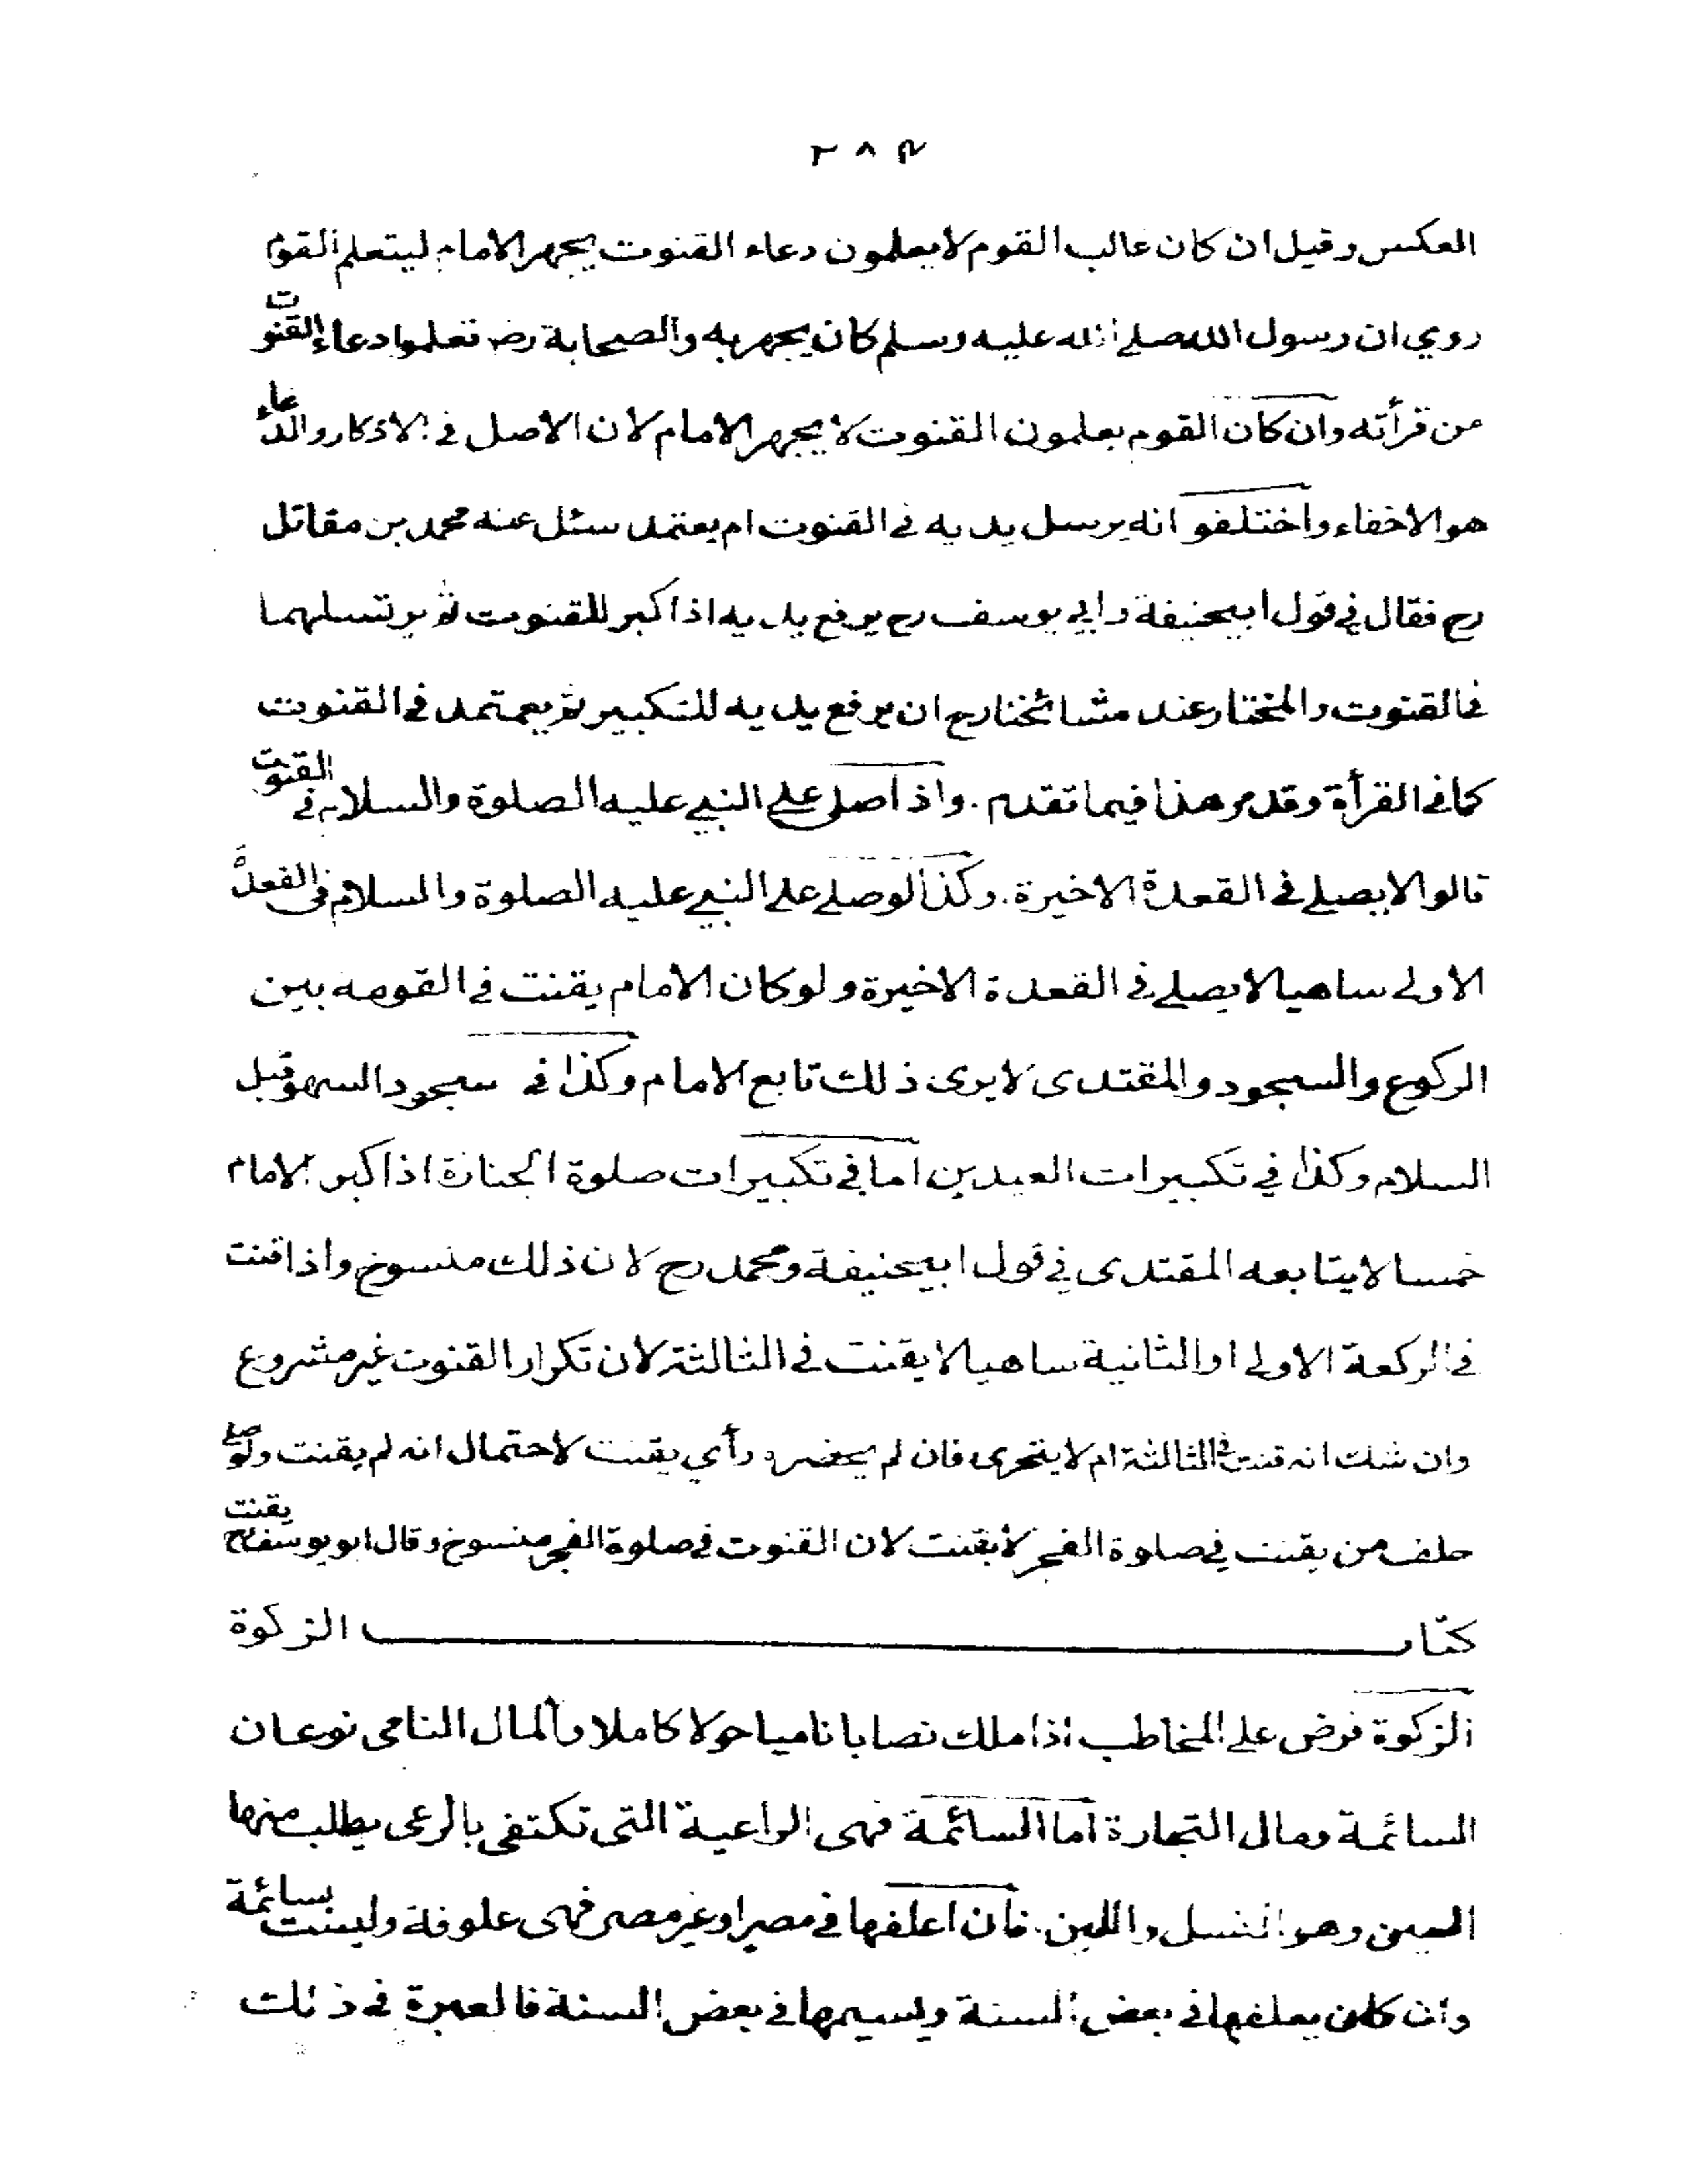 ٢٨٤
العكس وقيل ان كان غالب القوم لا يعلمون دعاء القنوت يجهر الامام ليتعلم القوم
روي ان رسول الله صلى الله عليه وسلم كان يجهر به والصحابة رض تعلموا دعاء القنوت
من قرأته وان كان القوم يعلمون القنوت لا يجهر الامام لان الاصل في الاذكار والدعاء
هو الاخفاء واختلفو انه يرسل يديه في القنوت ام يعتمد سئل عنه محمد بن مقاتل
رح فقال في قول ابيحنيفة وابي يوسف رح يرفع يديه اذا كبر للقنوت ثم يرسلهما
في القنوت والمختار عند مشائخنا رح ان يرفع يديه للتكبير ثم يعتمد في القنوت
كما في القرأة وقد مر هذا فيما تقدم . واذا صلى على النبي عليه الصلوة والسلام في القنوت
قالوا لا يصلي في القعدة الاخيرة . وكذا لو صلى على النبي عليه الصلوة والسلام في القعدة
الاولى ساهيا لا يصلي في القعدة الاخيرة ولو كان الامام يقنت في القومه بين
الركوع والسجود والمقتدى لا يرى ذلك تابع الامام وكذا في سجود السهو قبل
السلام وكذا في تكبيرات العيدين اما في تكبيرات صلوة الجنازة اذا كبر الامام
خمسا لا يتابعه المقتدى في قول ابيحنيفة ومحمد رح لان ذلك منسوخ واذا قنت
في الركعة الاولى او الثانية ساهيا لا يقنت في الثالثة لان تكرار القنوت غير مشروع
وان شك انه قنت في الثالثة ام لا يتحرى فان لم يحضره رأي يقنت لاحتمال انه لم يقنت ولو صلى
خلف من يقنت في صلوة الفجر لا يقنت لان القنوت في صلوة الفجر منسوخ وقال ابو يوسف رح يقنت
كتاب الزكوة
الزكوة فرض على المخاطب اذا ملك نصابا ناميا حولا كاملا والمال النامى نوعان
السائمة ومال التجارة اما السائمة فهى الراعية التى تكتفى بالرعى يطلب منها
العين وهو النسل واللبن . فان اعلفها في مصر او غير مصر فهى علوفة وليست بسائمة
وان كان يعلفها في بعض السنة ويسيمها في بعض السنة فالعبرة في ذلك